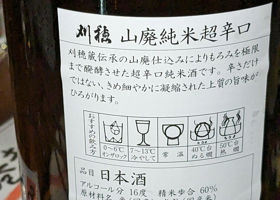 刈穂 山廃純米超辛口
刈穂蔵伝承の山廃仕込みによりもろみを極
限まで醗酵させた超辛口純米酒です。辛さだけ
ではない、きめ細やかに凝縮された上質の旨味が
ひろがります。
おすすめの飲み方
0〜6℃ オンザロック
7〜13℃ 冷やして
常温
40℃台 ぬる燗
50℃台 熱燗
品目 日本酒
アルコール分 16度 精米歩合 60%